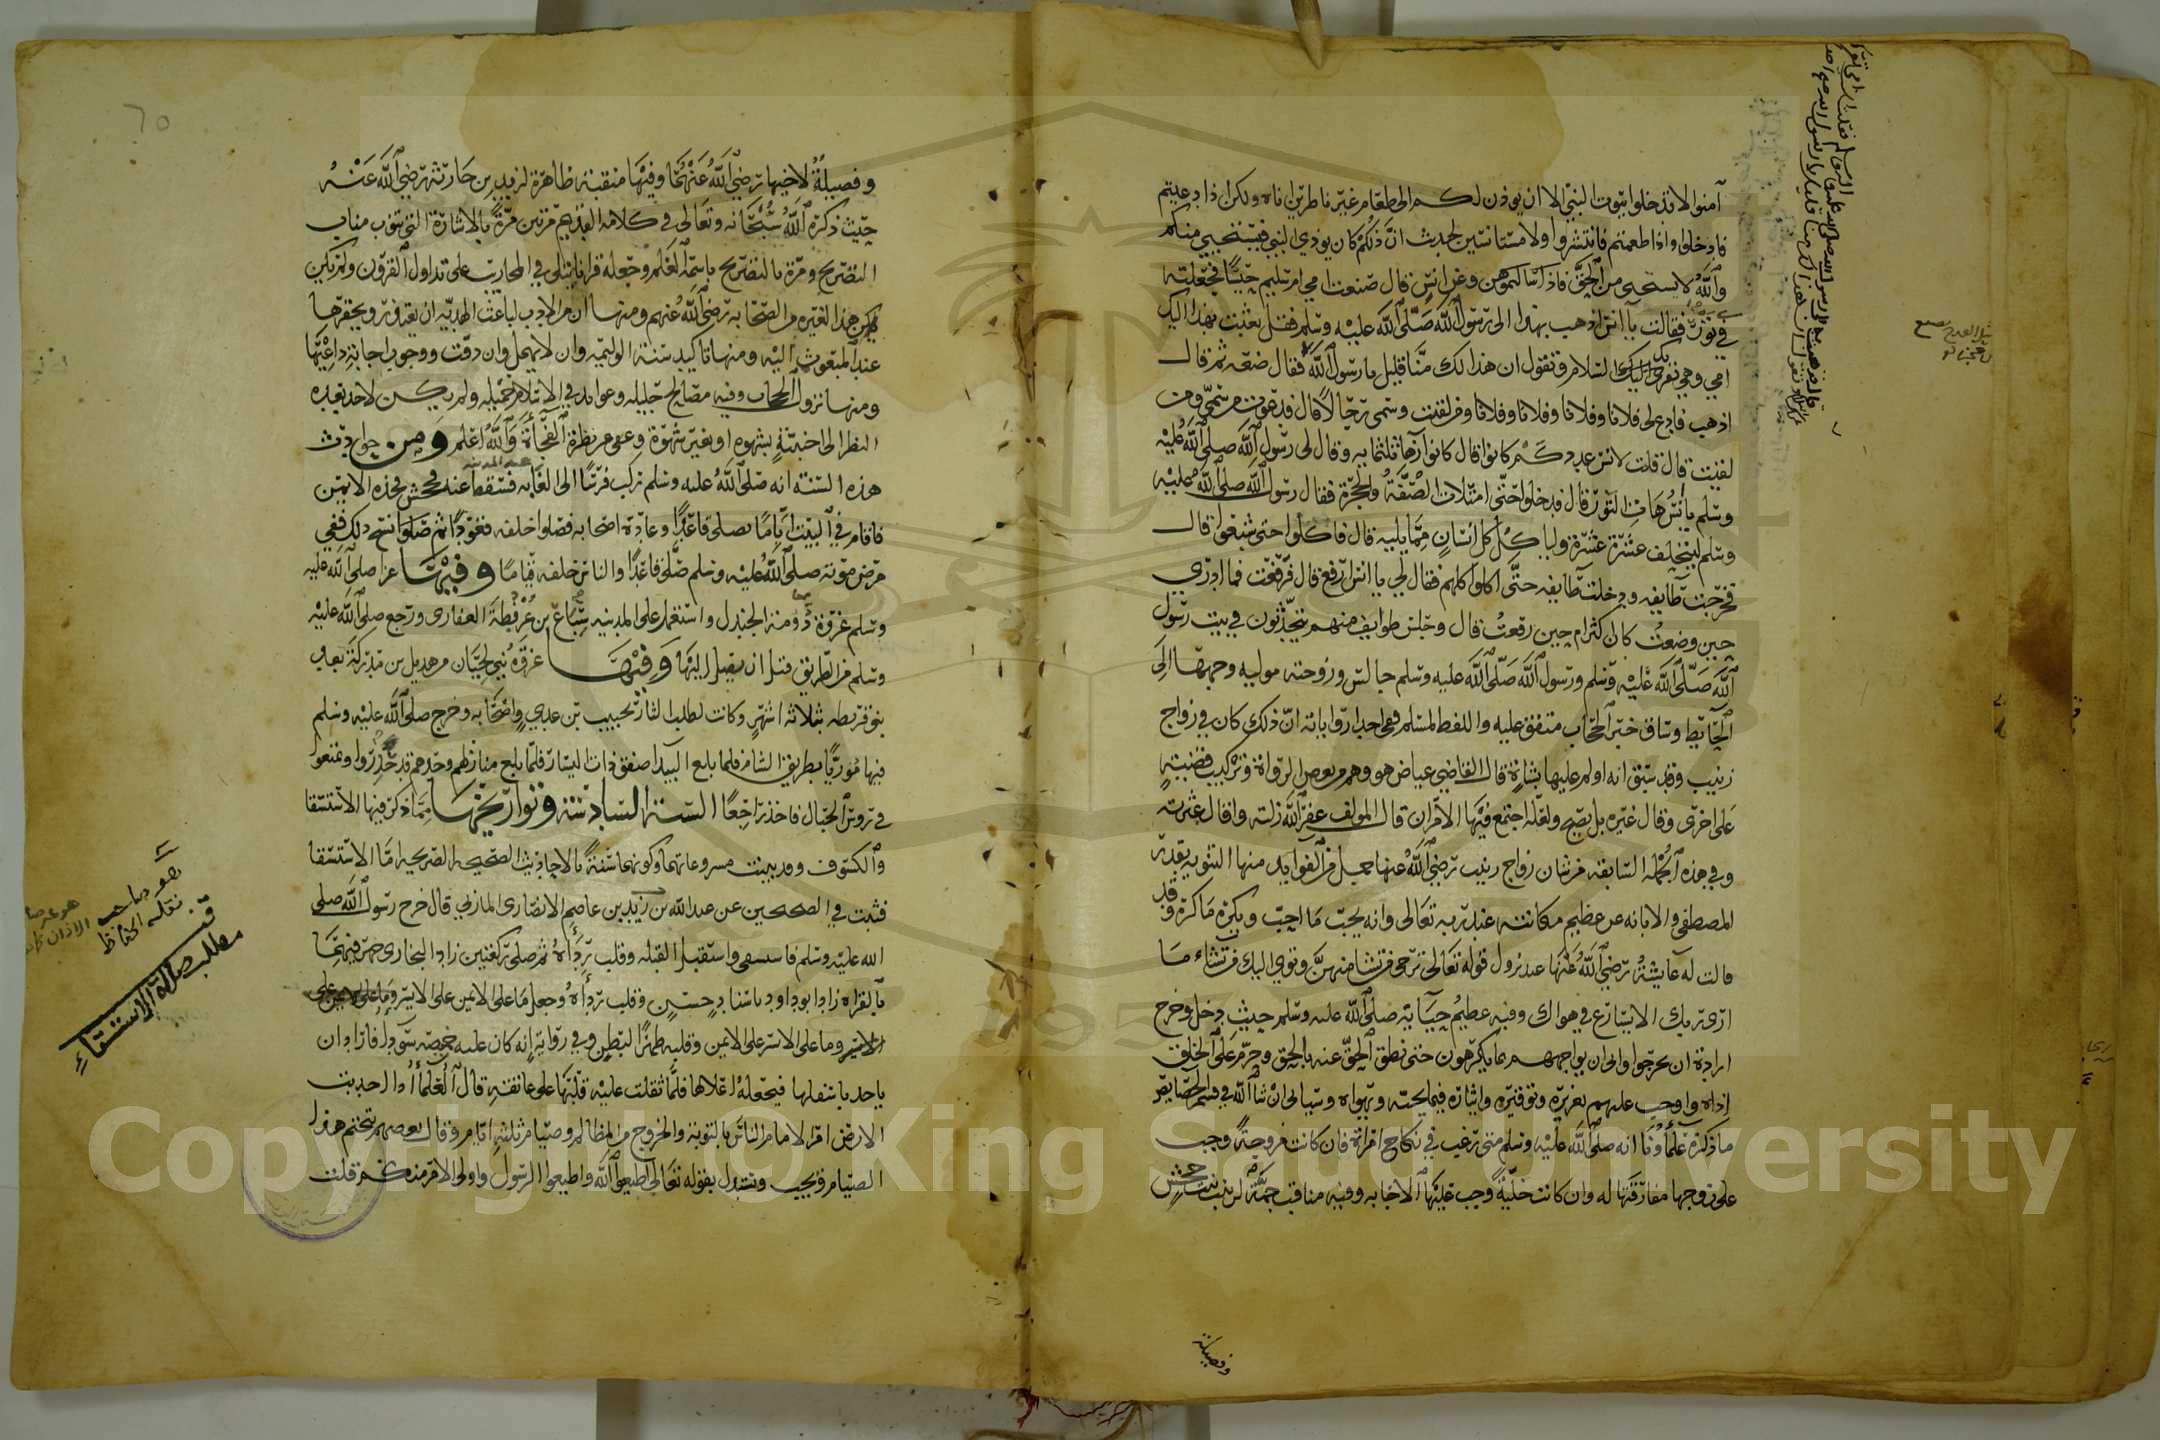 آمنوا لا تدخلوا بيوت النبي الا ان يوذن لكم الى طعام غير ناظرين اناه ولكن اذا دعيتم
فادخلوا واذا طعمتم فانتشروا ولا مستانسين لحديث ان ذلكم كان يوذي النبي فيستحيي منكم
والله لا يستحيي من الحق فاذا سالتموهن وعن انس قال صنعت امي ام سليم حيسا فجعلته
في تور فقالت يا انس اذهب بهذا الى رسول الله صلى الله عليه وسلم فقل بعثت بهذا اليك
امي وهي تقرئك السلام وتقول ان هذا لك منا قليل يا رسول الله فقال ضعه ثم قال
اذهب فادع لي فلانا وفلانا وفلانا وفلانا ومن لقيت وسمى رجالا قال فدعوت من سمى ومن
لقيت قال قلت لانس عدد كم كانوا قال كانوا زها ثلثمايه وقال لي رسول الله صلى الله عليه
وسلم يا انس هات التور قال فدخلوا حتى امتلات الصفة والحجرة فقال رسول الله صلى الله عليه
وسلم ليتحلق عشرة عشرة ولياكل كل انسان مما يليه قال فاكلوا حتى شبعوا قال
فخرجت طايفه ودخلت طايفه حتى اكلوا كلهم فقال لي يا انس ارفع قال فرفعت فما ادري
حين وضعت كان اكثر ام حين رفعت قال وجلس طوايف منهم يتحدثون في بيت رسول
الله صلى الله عليه وسلم ورسول الله صلى الله عليه وسلم جالس وزوجته موليه وجهها الى
الحايط وساق خبر الحجاب متفق عليه واللفظ لمسلم وفي احد رواياته ان ذلك كان في زواج
زينب وقد سبق انه اولم عليها بشاة قال القاضي عياض هو وهم من بعض الرواة وتركيب قصة
على اخرى وقال غيره بل يصح ولعله اجتمع فيها الامران قال المولف غفر الله زلته واقال عثرته
وفي هذه الجمله السابقه من شان زواج زينب رضي الله عنها جمل من الفوايد منها التنويه بقدر
المصطفى والابانه عن عظيم مكانته عند ربه تعالى وانه يحب ما احب ويكره ما كره وقد
قالت له عايشة رضي الله عنها عند نزول قوله تعالى ترجي من تشا منهن وتووي اليك من تشاء ما
ارى ربك الا يسارع في هواك وفيه عظيم حيايه صلى الله عليه وسلم حيث دخل وخرج
ارادة ان يخرجوا وابى ان يواجههم بما يكرهون حتى نطق الحق عنه بالحق وحرم على الخلق
اذاه واوجب عليهم تعزيره وتوقيره وايثاره فيما يحبه ويهواه وسياتي ان شا الله في قسم الخصايص
ما ذكره علماونا انه صلى الله عليه وسلم متى رغب في نكاح امراة فان كانت مزوجة وجب
على زوجها مفارقتها له وان كانت خلية وجب عليها الاجابه وفيه مناقب جمة لزينب بنت جحش
وفضيلة
وفضيلة لاختها رضي الله عنهما وفيها منقبة ظاهرة لزيد بن حارثة رضي الله عنه
حيث ذكره الله سبحانه وتعالى في كلامه القديم مرتين مرة بالاشارة التي تنوب مناب
التصريح ومرة بالتصريح باسمه العلم وجعله قرانا يتلى في المحاريب على تداول القرون ولم يكن
هذا لغيره من الصحابه رضي الله عنهم ومنها ان من الادب لباعث الهديه ان يعتذر ويحقرها
عند المبعوث اليه ومنها تاكيد سنة الوليمه وان لا يمهل وان دقت ووجوب اجابة داعيها
ومنها نزول الحجاب وفيه مصالح جليله وعوايد في الاسلام جميله ولم يكن لاحد بعده
النظر الى اجنبية بشهوه او بغير شهوة وعفي عن نظرة الفجأة والله اعلم ومن حوادث
هذه السنة انه صلى الله عليه وسلم ركب فرسا الى الغابه فسقط عنه فجحش فخذه الايمن
فاقام في البيت اياما يصلي قاعدا وعاده اصحابه فصلوا خلفه قعودا ثم نسخ ذلك ففي
مرض موته صلى الله عليه وسلم صلى قاعدا والناس خلفه قياما وفيها غزا صلى الله عليه
وسلم غزوة دومة الجندل واستعمل على المدينه سباع بن عرفطة الغفاري ورجع صلى الله عليه
وسلم من الطريق قبل ان يصل اليها وفيها غزوة بني لحيان من هذيل بن مدركة بعد
بنو قريظه بثلاثة اشهر وكانت لطلب الثار بخبيب بن عدي واصحابه وخرج صلى الله عليه وسلم
فيها موريا بطريق الشام فلما بلغ البيدا صفق ذات اليسار فلما بلغ منازلهم وجدهم قد حذروا وتمنعوا
في روس الجبال فاخذ راجعا السنة السادسة وتواريخها مما ذكر فيها الاستسقا
والكسوف وقد بينت مشروعاتهما وكونهما سنة بالاحاديث الصحيحه الصريحه اما الاستسقا
فثبت في الصحيحين عن عبد الله بن زيد بن عاصم الانصاري المازني قال خرج رسول الله صلى
الله عليه وسلم فاستسقى واستقبل القبله وقلب رداه ثم صلى ركعتين زاد البخاري جهر فيهما
بالقراه زاد ابو داود باسناد حسن وقلب رداه وجعل ما على الايمن على الايسر
وما على الايسر على الايمن وقلبه ظهرا لبطن وفي رواية انه كان عليه خميصه سودا فاراد ان
ياخذ باسفلها فيجعله اعلاها فلما ثقلت عليه قلبها على عاتقه قال العلماء اذا اجدبت
الارض امر الامام الناس بالتوبة والخروج من المظالم وصيام ثلثة ايام وقال بعضهم يتحتم هذا
الصيام ويجب واستدل بقوله تعالى اطيعوا الله واطيعوا الرسول واولي الامر منكم قلت
قف
مطلب صلاة الاستسقاء
Copyright © King Saud University